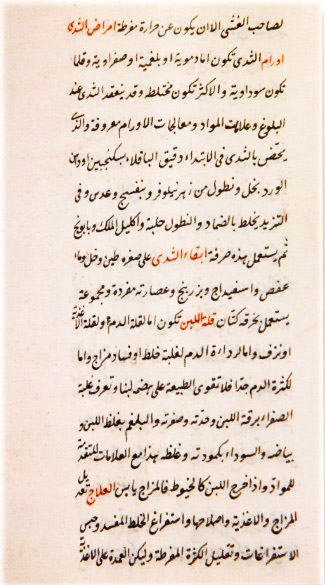 لصاحب الغشى الا ان يكون عن حرارة مفرطة امراض الثدى
اورام الثدى تكون اما دموية او بلغمية او صفراوية وقلما
تكون سوداوية والاكثر تكون مختلط وقد ينعقد الثدى عند
البلوغ وعلامات المواد ومعالجات الاورام معروفة والذى
يختص بالثدى فى الابتداء دقيق الباقلاء بسكنجبين او دهن
الورد بخل ونطول من زهر نيلوفر وبنفسج وعدس وفى
التزيد يخلط بالضماد والنطول حلبة واكليل الملك وبابونج
ثم يستعمل بهذه صرفة ابقاء الثدى على صغره طين وخل وماء
عفص واسفيداج وبزر بنج وعصارته مفردة ومجموعة
يستعمل بخرقة كتان قلة اللبن تكون اما لقلة الدم او لقلة الاغذية
او نزف واما لرداءة الدم لغلبة خلط او فساد مزاج واما
لكثرة الدم جدا فلا تقوى الطبيعة على هضمه لبنا وتعرف غلبة
الصفراء برقة اللبن وحدته وصفرته والبلغم بغلظ اللبن و
بياضه والسوداء بكمودته وغلظه هذا مع العلامات المتقدمة
للمواد واذا خرج اللبن كالخيوط فالمزاج يابس العلاج تعديل
المزاج والاغذية واصلاحها واستفراغ الخلط المفسد وحبس
الاستفراغات وتقليل الكثرة المفرطة وليكن العمدة على الاغذية